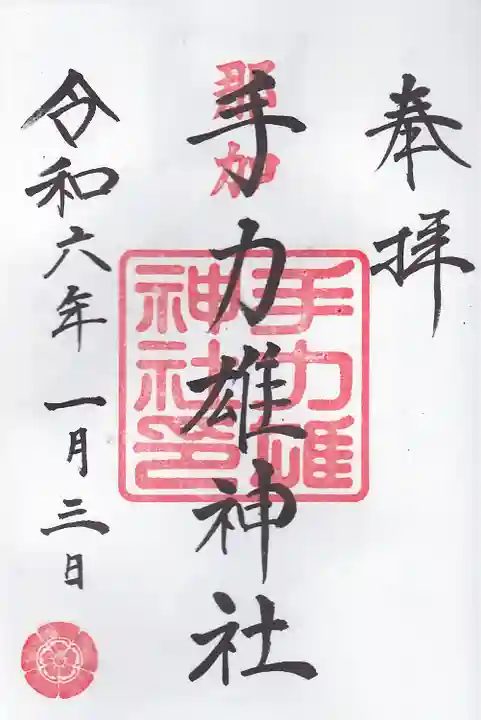 奉拝
那加
手力雄神社
手力雄神社印
令和六年一月三日